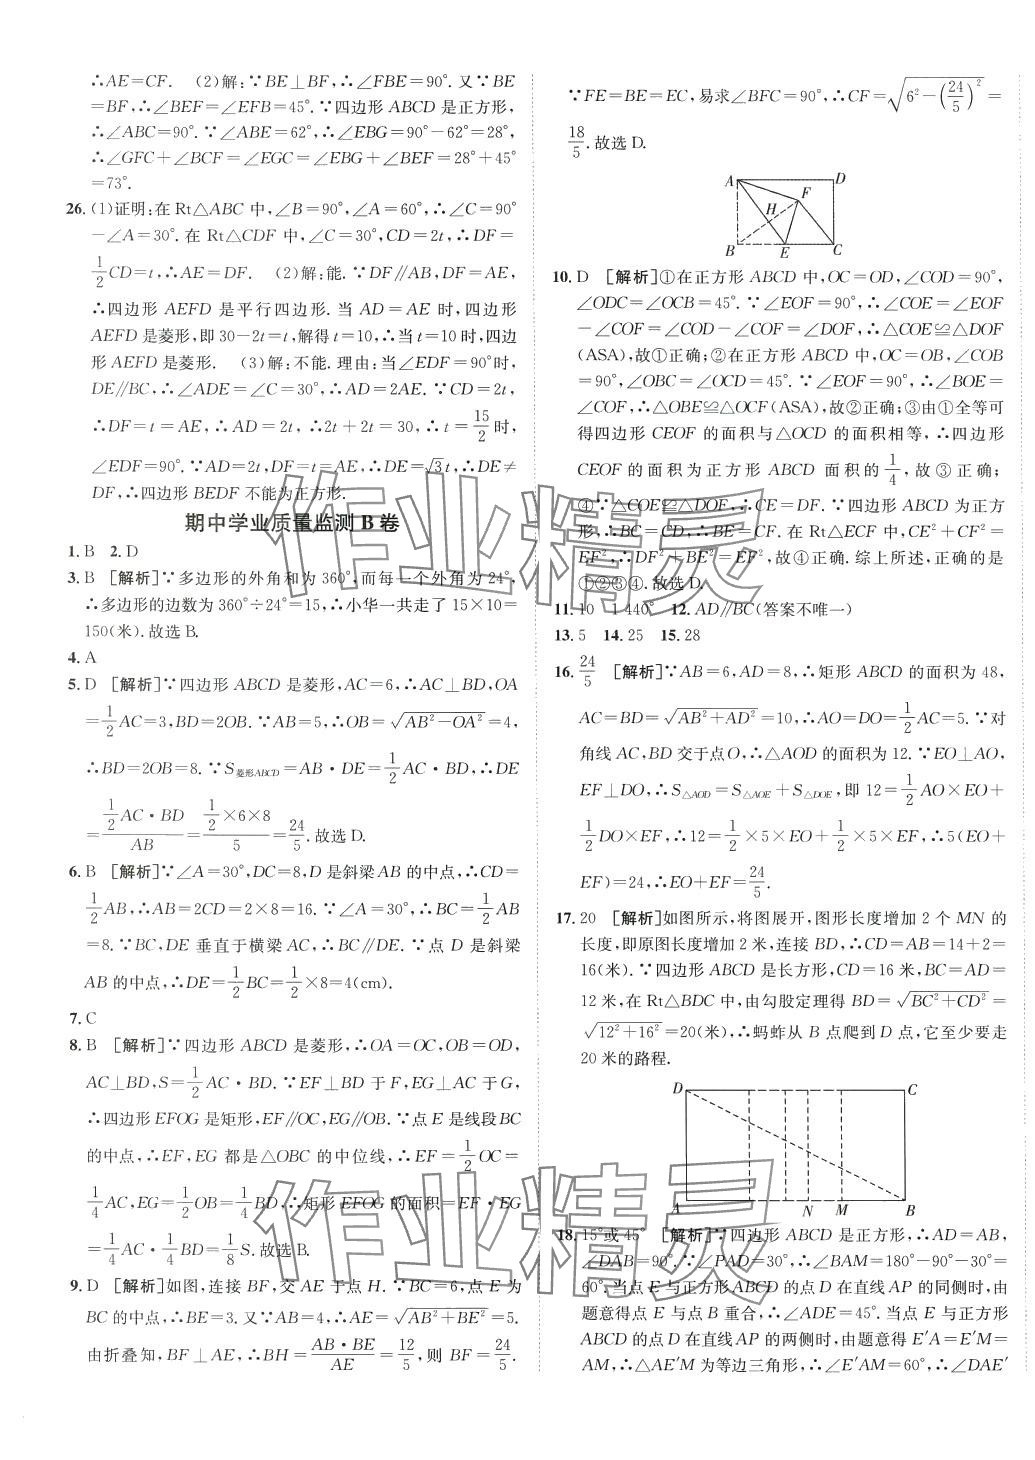 ∴AE=CF. (2)解:∵BE⊥BF,∴∠FBE=90°.又∵BE
=BF,∴∠BEF=∠EFB=45°.∵四边形 ABCD 是正方形,
∴∠ABC=90°.∵∠ABE=62°,∴∠EBG=90°-62°=28°,
∴∠GFC+∠BCF=∠EGC=∠EBG+∠BEF=28°+45°
=73°.
26.(1)证明:在 Rt△ABC 中,∠B=90°,∠A=60°,∴∠C=90°
-∠A=30°.在 Rt△CDF 中,∠C=30°,CD=2t,∴DF=
1/2CD=t,∴AE=DF. (2)解:能.∵DF∥AB,DF=AE,
∴四边形 AEFD 是平行四边形.当 AD=AE 时,四边形
AEFD 是菱形,即 30-2t=t,解得 t=10,∴当 t=10 时,四边
形 AEFD 是菱形. (3)解:不能.理由:当∠EDF=90°时,
DE∥BC,∴∠ADE=∠C=30°,∴AD=2AE.∵CD=2t,
∴DF=t=AE,∴AD=2t,∴2t+2t=30,∴t=15/2时,
∠EDF=90°.∵AD=2t,DF=t=AE,∴DE=√3t,∴DE≠
DF,∴四边形 BEDF 不能为正方形.
期中学业质量监测 B 卷
1.B 2.D
3.B [解析]∵多边形的外角和为 360°,而每一个外角为 24°,
∴多边形的边数为 360°÷24°=15,∴小华一共走了 15×10=
150(米).故选 B.
4.A
5.D [解析]∵四边形 ABCD 是菱形,AC=6,∴AC⊥BD,OA
=1/2AC=3,BD=2OB.∵AB=5,∴OB=√(AB²-OA²)=4,
∴BD=2OB=8.∵S菱形ABCD=AB·DE=1/2AC·BD,∴DE
=(1/2AC·BD)/AB=(1/2×6×8)/5=24/5.故选 D.
6.B [解析]∵∠A=30°,DC=8,D 是斜梁 AB 的中点,∴CD=
1/2AB,∴AB=2CD=2×8=16.∵∠A=30°,∴BC=1/2AB
=8.∵BC,DE 垂直于横梁 AC,∴BC∥DE.∵点 D 是斜梁
AB 的中点,∴DE=1/2BC=1/2×8=4(cm).
7.C
8.B [解析]∵四边形 ABCD 是菱形,∴OA=OC,OB=OD,
AC⊥BD,S=1/2AC·BD.∵EF⊥BD 于 F,EG⊥AC 于 G,
∴四边形 EFOG 是矩形,EF∥OC,EG∥OB.∵点 E 是线段 BC
的中点,∴EF,EG 都是△OBC 的中位线,∴EF=1/2OC=
1/4AC,EG=1/2OB=1/4BD,∴矩形 EFOG 的面积=EF·EG
=1/4AC·1/4BD=1/8S.故选 B.
9.D [解析]如图,连接 BF,交 AE 于点 H.∵BC=6,点 E 为
BC 的中点,∴BE=3.又∵AB=4,∴AE=√(AB²+BE²)=5.
由折叠知,BF⊥AE,∴BH=(AB·BE)/AE=12/5,则 BF=24/5.
∵FE=BE=EC,易求∠BFC=90°,∴CF=√(6²-(24/5)²)=
18/5.故选 D.
A D
F
H
B E C
10.D [解析]①在正方形 ABCD 中,OC=OD,∠COD=90°,
∠ODC=∠OCB=45°.∵∠EOF=90°,∴∠COE=∠EOF
-∠COF=∠COD-∠COF=∠DOF,∴△COE≌△DOF
(ASA),故①正确;②在正方形 ABCD 中,OC=OB,∠COB
=90°,∠OBC=∠OCD=45°.∵∠EOF=90°,∴∠BOE=
∠COF,∴△OBE≌△OCF(ASA),故②正确;③由①全等可
得四边形 CEOF 的面积与△OCD 的面积相等,∴四边形
CEOF 的面积为正方形 ABCD 面积的1/4,故③正确;
④∵△COE≌△DOF,∴CE=DF.∵四边形 ABCD 为正方
形,∴BC=CD,∴BE=CF.在 Rt△ECF 中,CE²+CF²=
EF²,∴DF²+BE²=EF²,故④正确.综上所述,正确的是
①②③④.故选 D.
11.10 1 440° 12.AD∥BC(答案不唯一)
13.5 14.25 15.28
16.24/5 [解析]∵AB=6,AD=8,∴矩形 ABCD 的面积为 48,
AC=BD=√(AB²+AD²)=10,∴AO=DO=1/2AC=5.∵对
角线 AC,BD 交于点 O,∴△AOD 的面积为 12.∵EO⊥AO,
EF⊥DO,∴S△AOD=S△AOE+S△DOE,即 12=1/2AO×EO+
1/2DO×EF,∴12=1/2×5×EO+1/2×5×EF,∴5(EO+
EF)=24,∴EO+EF=24/5.
17.20 [解析]如图所示,将图展开,图形长度增加 2 个 MN 的
长度,即原图长度增加 2 米,连接 BD,∴CD=AB=14+2=
16(米).∵四边形 ABCD 是长方形,CD=16 米,BC=AD=
12 米,在 Rt△BDC 中,由勾股定理得 BD=√(BC²+CD²)=
√(12²+16²)=20(米),∴蚂蚱从 B 点爬到 D 点,它至少要走
20 米的路程.
D C
A N M B
18.15°或 45° [解析]∵四边形 ABCD 是正方形,∴AD=AB,
∠DAB=90°.∵∠PAD=30°,∴∠BAM=180°-90°-30°=
60°.当点 E 与正方形 ABCD 的点 D 在直线 AP 的同侧时,由
题意得点 E 与点 B 重合,∴∠ADE=45°.当点 E 与正方形
ABCD 的点 D 在直线 AP 的两侧时,由题意得 E′A=E′M=
AM,∴△AE′M 为等边三角形,∴∠E′AM=60°,∴∠DAE′
作业精灵
作业精灵